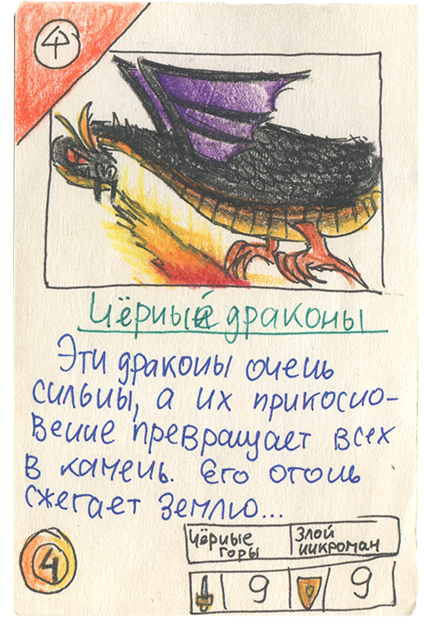 4
Чёрные драконы
Эти драконы очень
сильны, а их прикосно-
вение превращает всех
в камень. Его огонь
сжегает землю...
4
Чёрные горы
Злой никроман
9 9